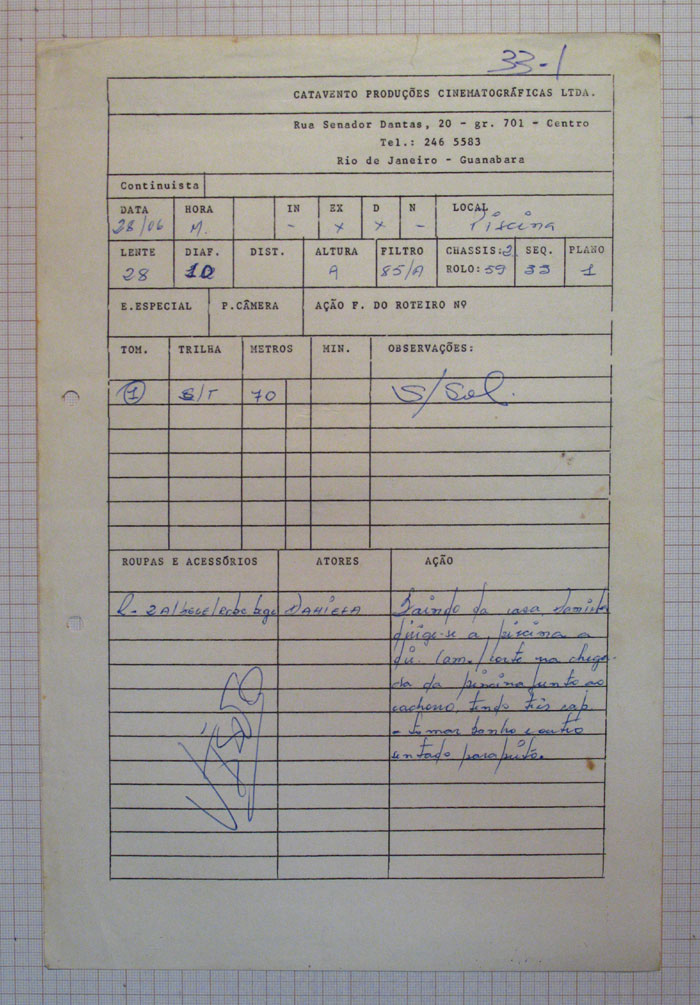 33-1
CATAVENTO PRODUÇÕES CINEMATOGRÁFICAS LTDA.
Rua Senador Dantas, 20 - gr. 701 - Centro
Tel.: 246 5583
Rio de Janeiro - Guanabara
Continuista
DATA HORA IN EX D N LOCAL
28/06 M. - x x - Piscina
LENTE DIAF. DIST. ALTURA FILTRO CHASSIS: 2 SEQ. PLANO
28 10 A 85/A ROLO: 59 33 1
E.ESPECIAL P.CÂMERA AÇÃO F. DO ROTEIRO Nº
TOM. TRILHA METROS MIN. OBSERVAÇÕES:
1 S/T 70 S/Sol.
ROUPAS E ACESSÓRIOS ATORES AÇÃO
DANIELA Saindo da casa Daniela
dirige-se a piscina a
di. Cam./corte na chega-
da da piscina junto ao
cachorro, tendo três cap.
- tomar banho e outro
sentado parapeito.
VISTO